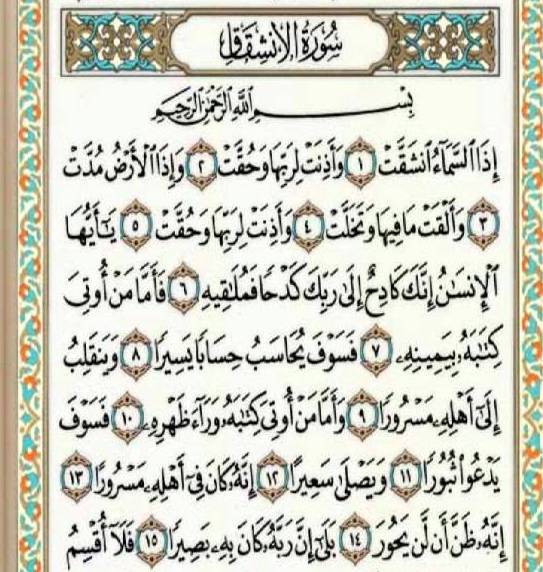 سُورَةُ الِانشِقَاقِ
بِسْمِ اللَّهِ الرَّحْمَٰنِ الرَّحِيمِ
إِذَا السَّمَاءُ انشَقَّتْ ١ وَأَذِنَتْ لِرَبِّهَا وَحُقَّتْ ٢ وَإِذَا الْأَرْضُ مُدَّتْ
٣ وَأَلْقَتْ مَا فِيهَا وَتَخَلَّتْ ٤ وَأَذِنَتْ لِرَبِّهَا وَحُقَّتْ ٥ يَٰٓأَيُّهَا
الْإِنسَٰنُ إِنَّكَ كَادِحٌ إِلَىٰ رَبِّكَ كَدْحًا فَمُلَٰقِيهِ ٦ فَأَمَّا مَنْ أُوتِيَ
كِتَٰبَهُۥ بِيَمِينِهِۦ ٧ فَسَوْفَ يُحَاسَبُ حِسَابًا يَسِيرًا ٨ وَيَنقَلِبُ
إِلَىٰٓ أَهْلِهِۦ مَسْرُورًا ٩ وَأَمَّا مَنْ أُوتِيَ كِتَٰبَهُۥ وَرَآءَ ظَهْرِهِۦ ١٠ فَسَوْفَ
يَدْعُوا۟ ثُبُورًا ١١ وَيَصْلَىٰ سَعِيرًا ١٢ إِنَّهُۥ كَانَ فِىٓ أَهْلِهِۦ مَسْرُورًا ١٣
إِنَّهُۥ ظَنَّ أَن لَّن يَحُورَ ١٤ بَلَىٰٓ إِنَّ رَبَّهُۥ كَانَ بِهِۦ بَصِيرًا ١٥ فَلَآ أُقْسِمُ